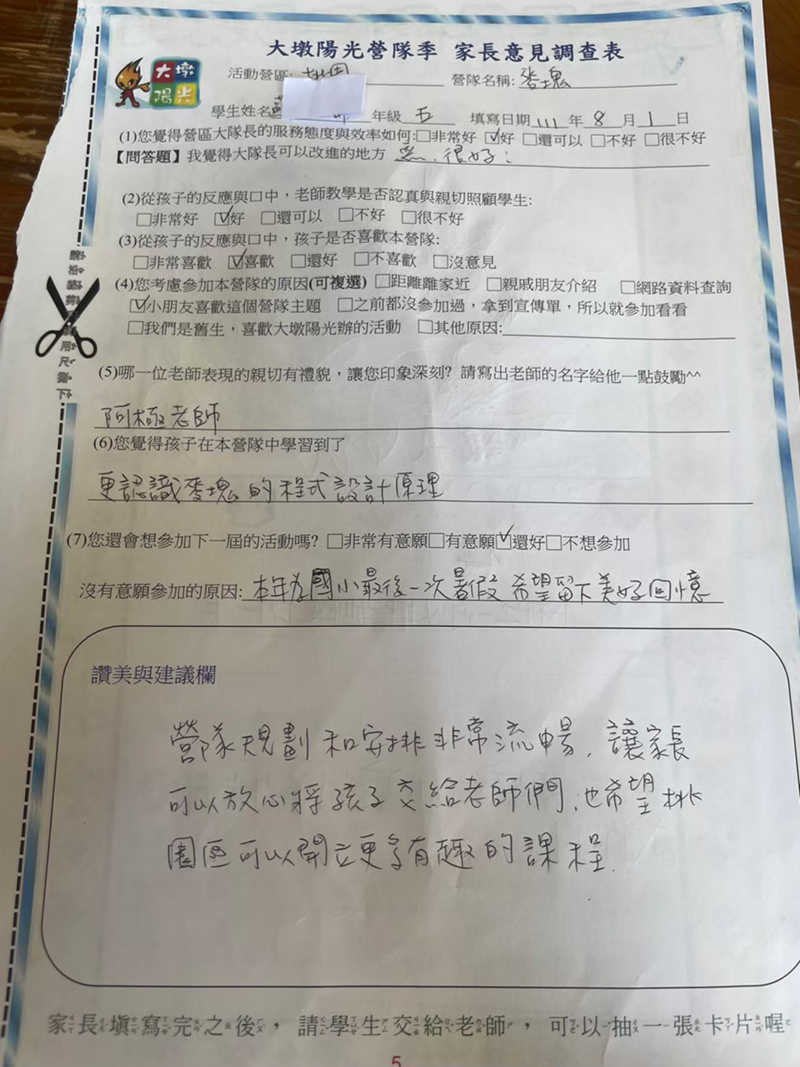 大墩陽光營隊季 家長意見調查表
大墩
陽光
活動營區: 桃園 營隊名稱: 麥塊
學生姓名 年級 五 填寫日期 111 年 8 月 1 日
(1)您覺得營區大隊長的服務態度與效率如何:□非常好 ☑好 □還可以 □不好 □很不好
【問答題】我覺得大隊長可以改進的地方 無,很好!
(2)從孩子的反應與口中，老師教學是否認真與親切照顧學生:
□非常好 ☑好 □還可以 □不好 □很不好
(3)從孩子的反應與口中，孩子是否喜歡本營隊:
□非常喜歡 ☑喜歡 □還好 □不喜歡 □沒意見
(4)您考慮參加本營隊的原因(可複選) □距離離家近 □親戚朋友介紹 □網路資料查詢
☑小朋友喜歡這個營隊主題 □之前都沒參加過，拿到宣傳單，所以就參加看看
□我們是舊生，喜歡大墩陽光辦的活動 □其他原因:
(5)哪一位老師表現的親切有禮貌，讓您印象深刻? 請寫出老師的名字給他一點鼓勵^^
阿極老師
(6)您覺得孩子在本營隊中學習到了
更認識麥塊的程式設計原理
(7)您還會想參加下一屆的活動嗎? □非常有意願□有意願☑還好□不想參加
沒有意願參加的原因: 本年為國小最後一次暑假 希望留下美好回憶
讚美與建議欄
營隊規劃和安排非常流暢,讓家長
可以放心將孩子交給老師們,也希望桃
園區可以開立更多有趣的課程.
家長填寫完之後，請學生交給老師，可以抽一張卡片喔
5